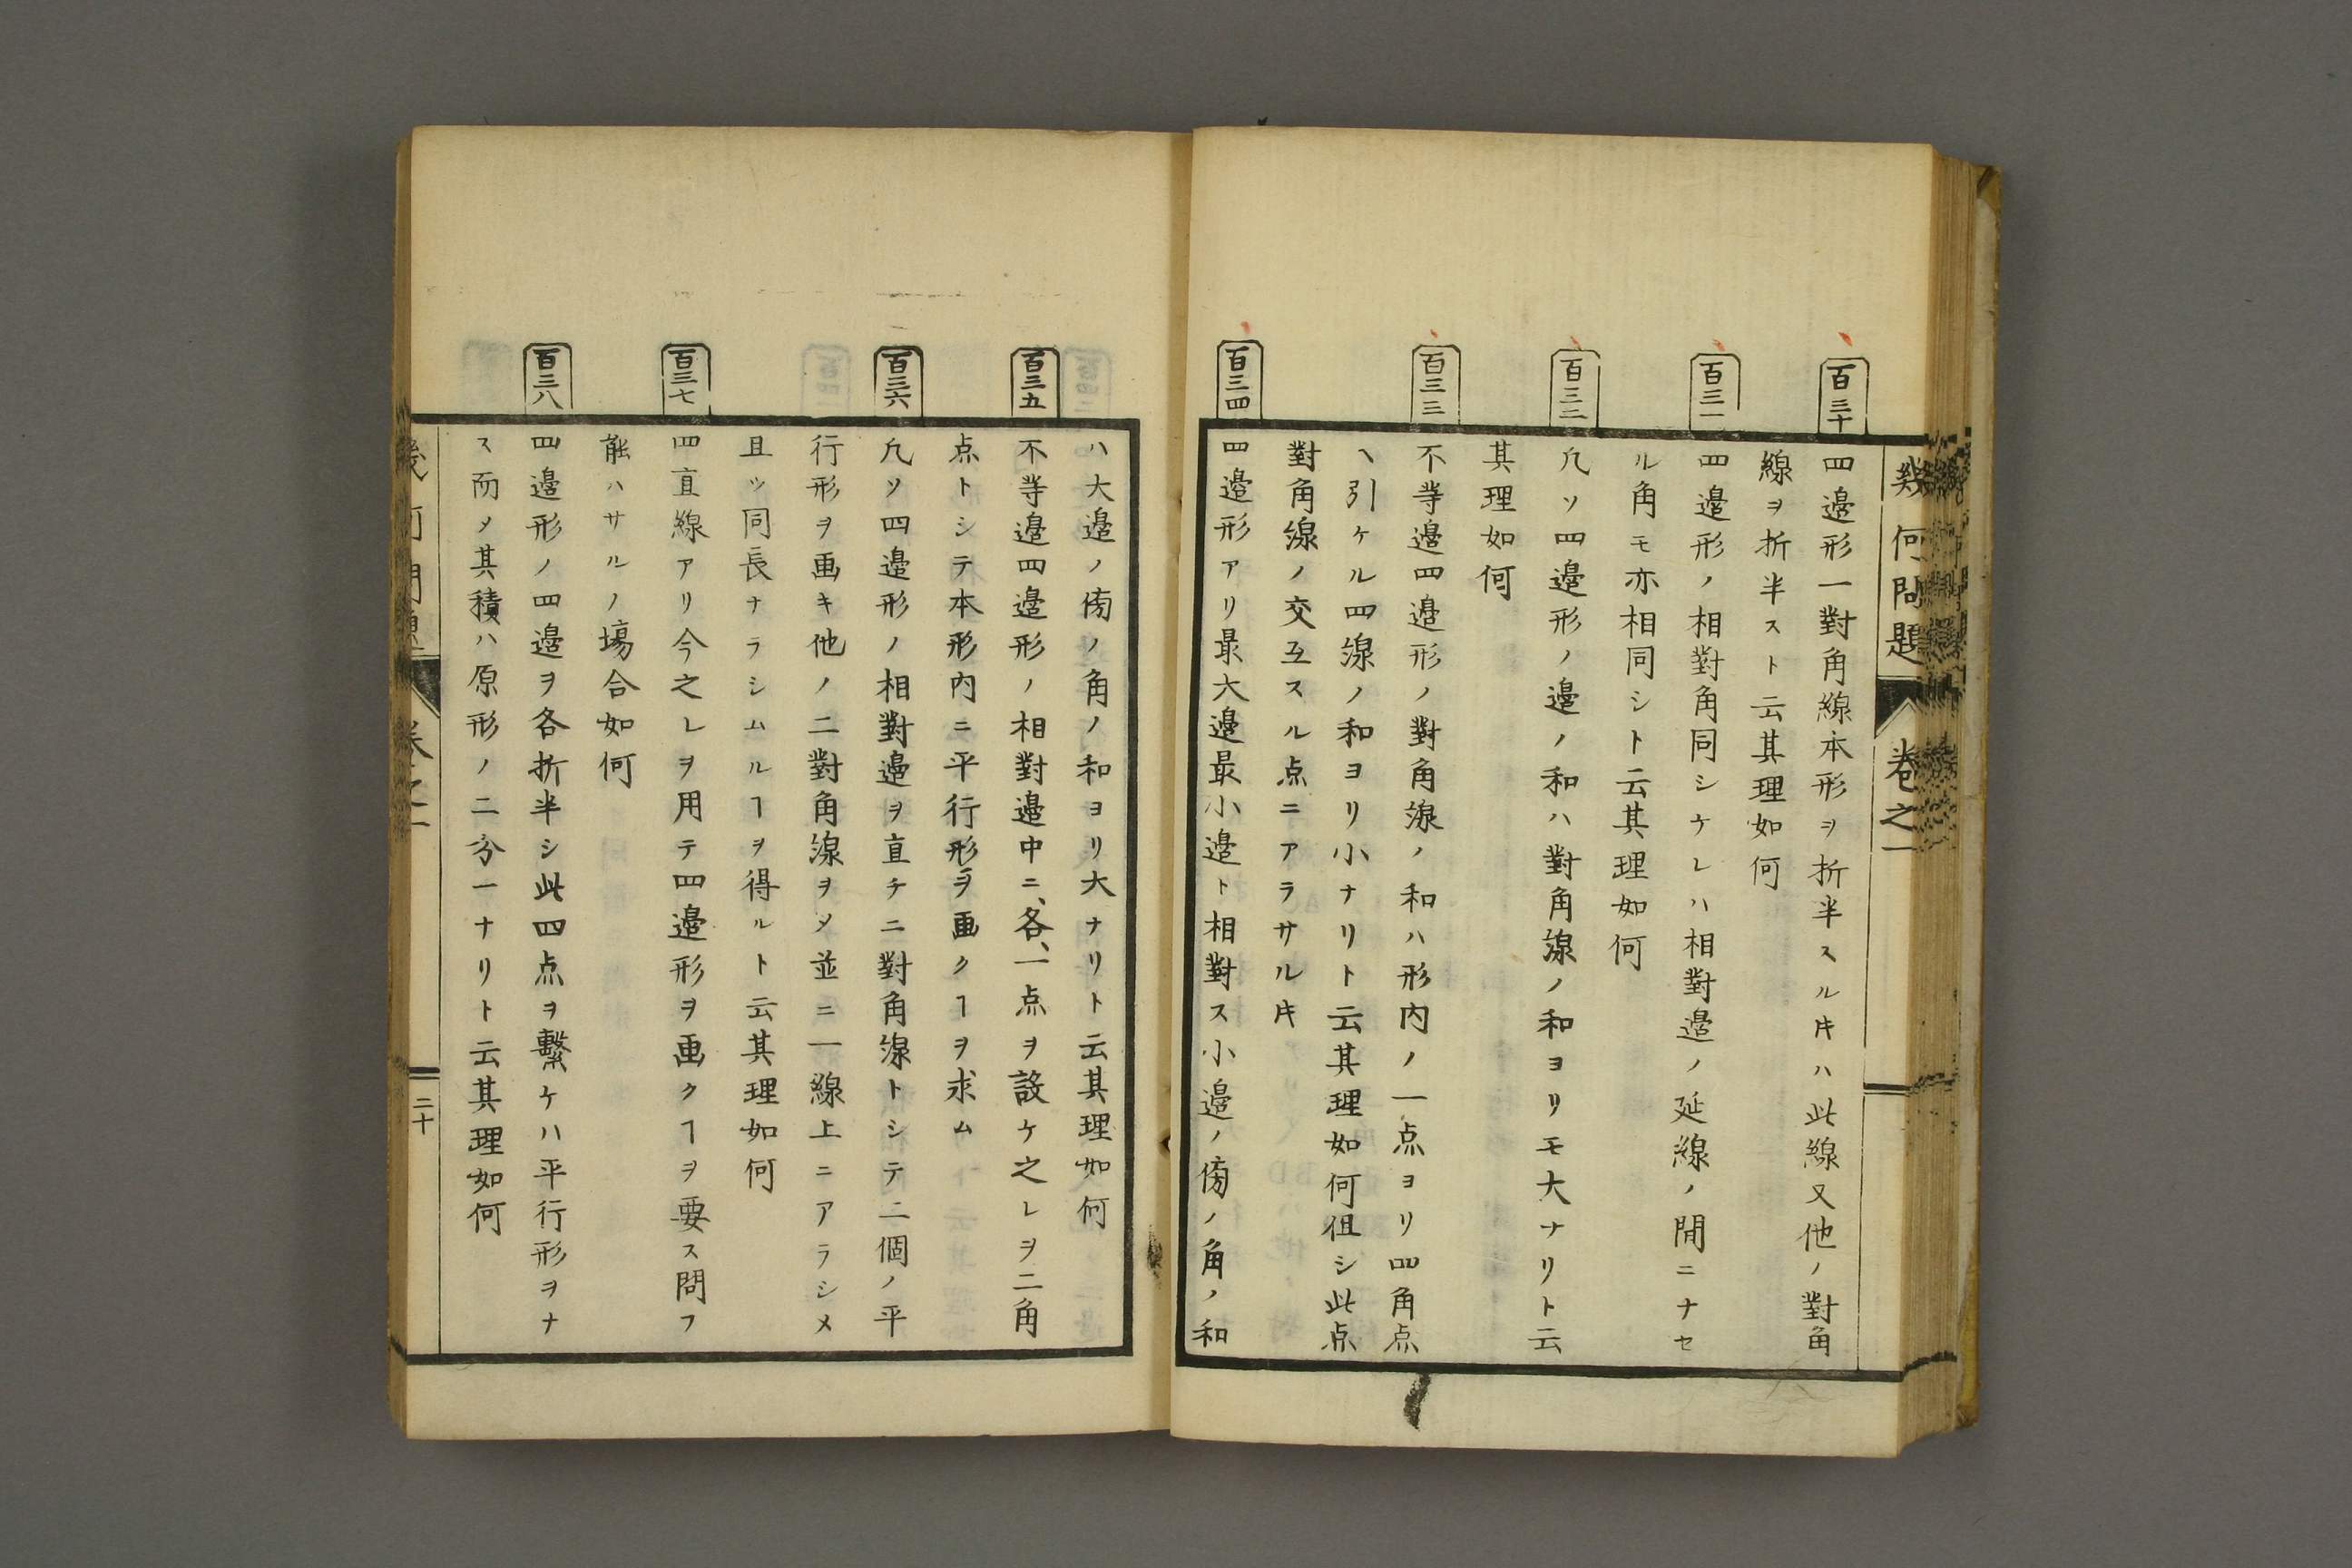 幾何問題
卷之一
百三十
四邉形一對角線本形ヲ折半スル𪜈ハ此線又他ノ對角
線ヲ折半スト云其理如何
百三一
四邉形ノ相對角同シケレハ相對邉ノ延線ノ間ニナセ
ル角モ亦相同シト云其理如何
百三二
凢ソ四邉形ノ邉ノ和ハ對角線ノ和ヨリモ大ナリト云
其理如何
百三三
不等邉四邉形ノ對角線ノ和ハ形内ノ一点ヨリ四角点
ヘ引ケル四線ノ和ヨリ小ナリト云其理如何但シ此点
對角線ノ交互スル点ニアラサル𪜈
百三四
四邉形アリ最大邉最小邉ト相對ス小邉ノ傍ノ角ノ和
ハ大邉ノ傍ノ角ノ和ヨリ大ナリト云其理如何
百三五
不等邉四邉形ノ相對邉中ニ、各、一点ヲ設ケ之レヲ二角
点トシテ本形内ニ平行形ヲ画クヿヲ求ム
百三六
凢ソ四邉形ノ相對邉ヲ直チニ對角線トシテ二個ノ平
行形ヲ画キ他ノ二對角線ヲメ並ニ一線上ニアラシメ
且ツ同長ナラシムルヿヲ得ルト云其理如何
百三七
四直線アリ今之レヲ用テ四邉形ヲ画クヿヲ要ス問フ
能ハサルノ塲合如何
百三八
四邉形ノ四邉ヲ各折半シ此四点ヲ繫ケハ平行形ヲナ
ス而メ其積ハ原形ノ二分一ナリト云其理如何
幾何問題
卷之一
二十